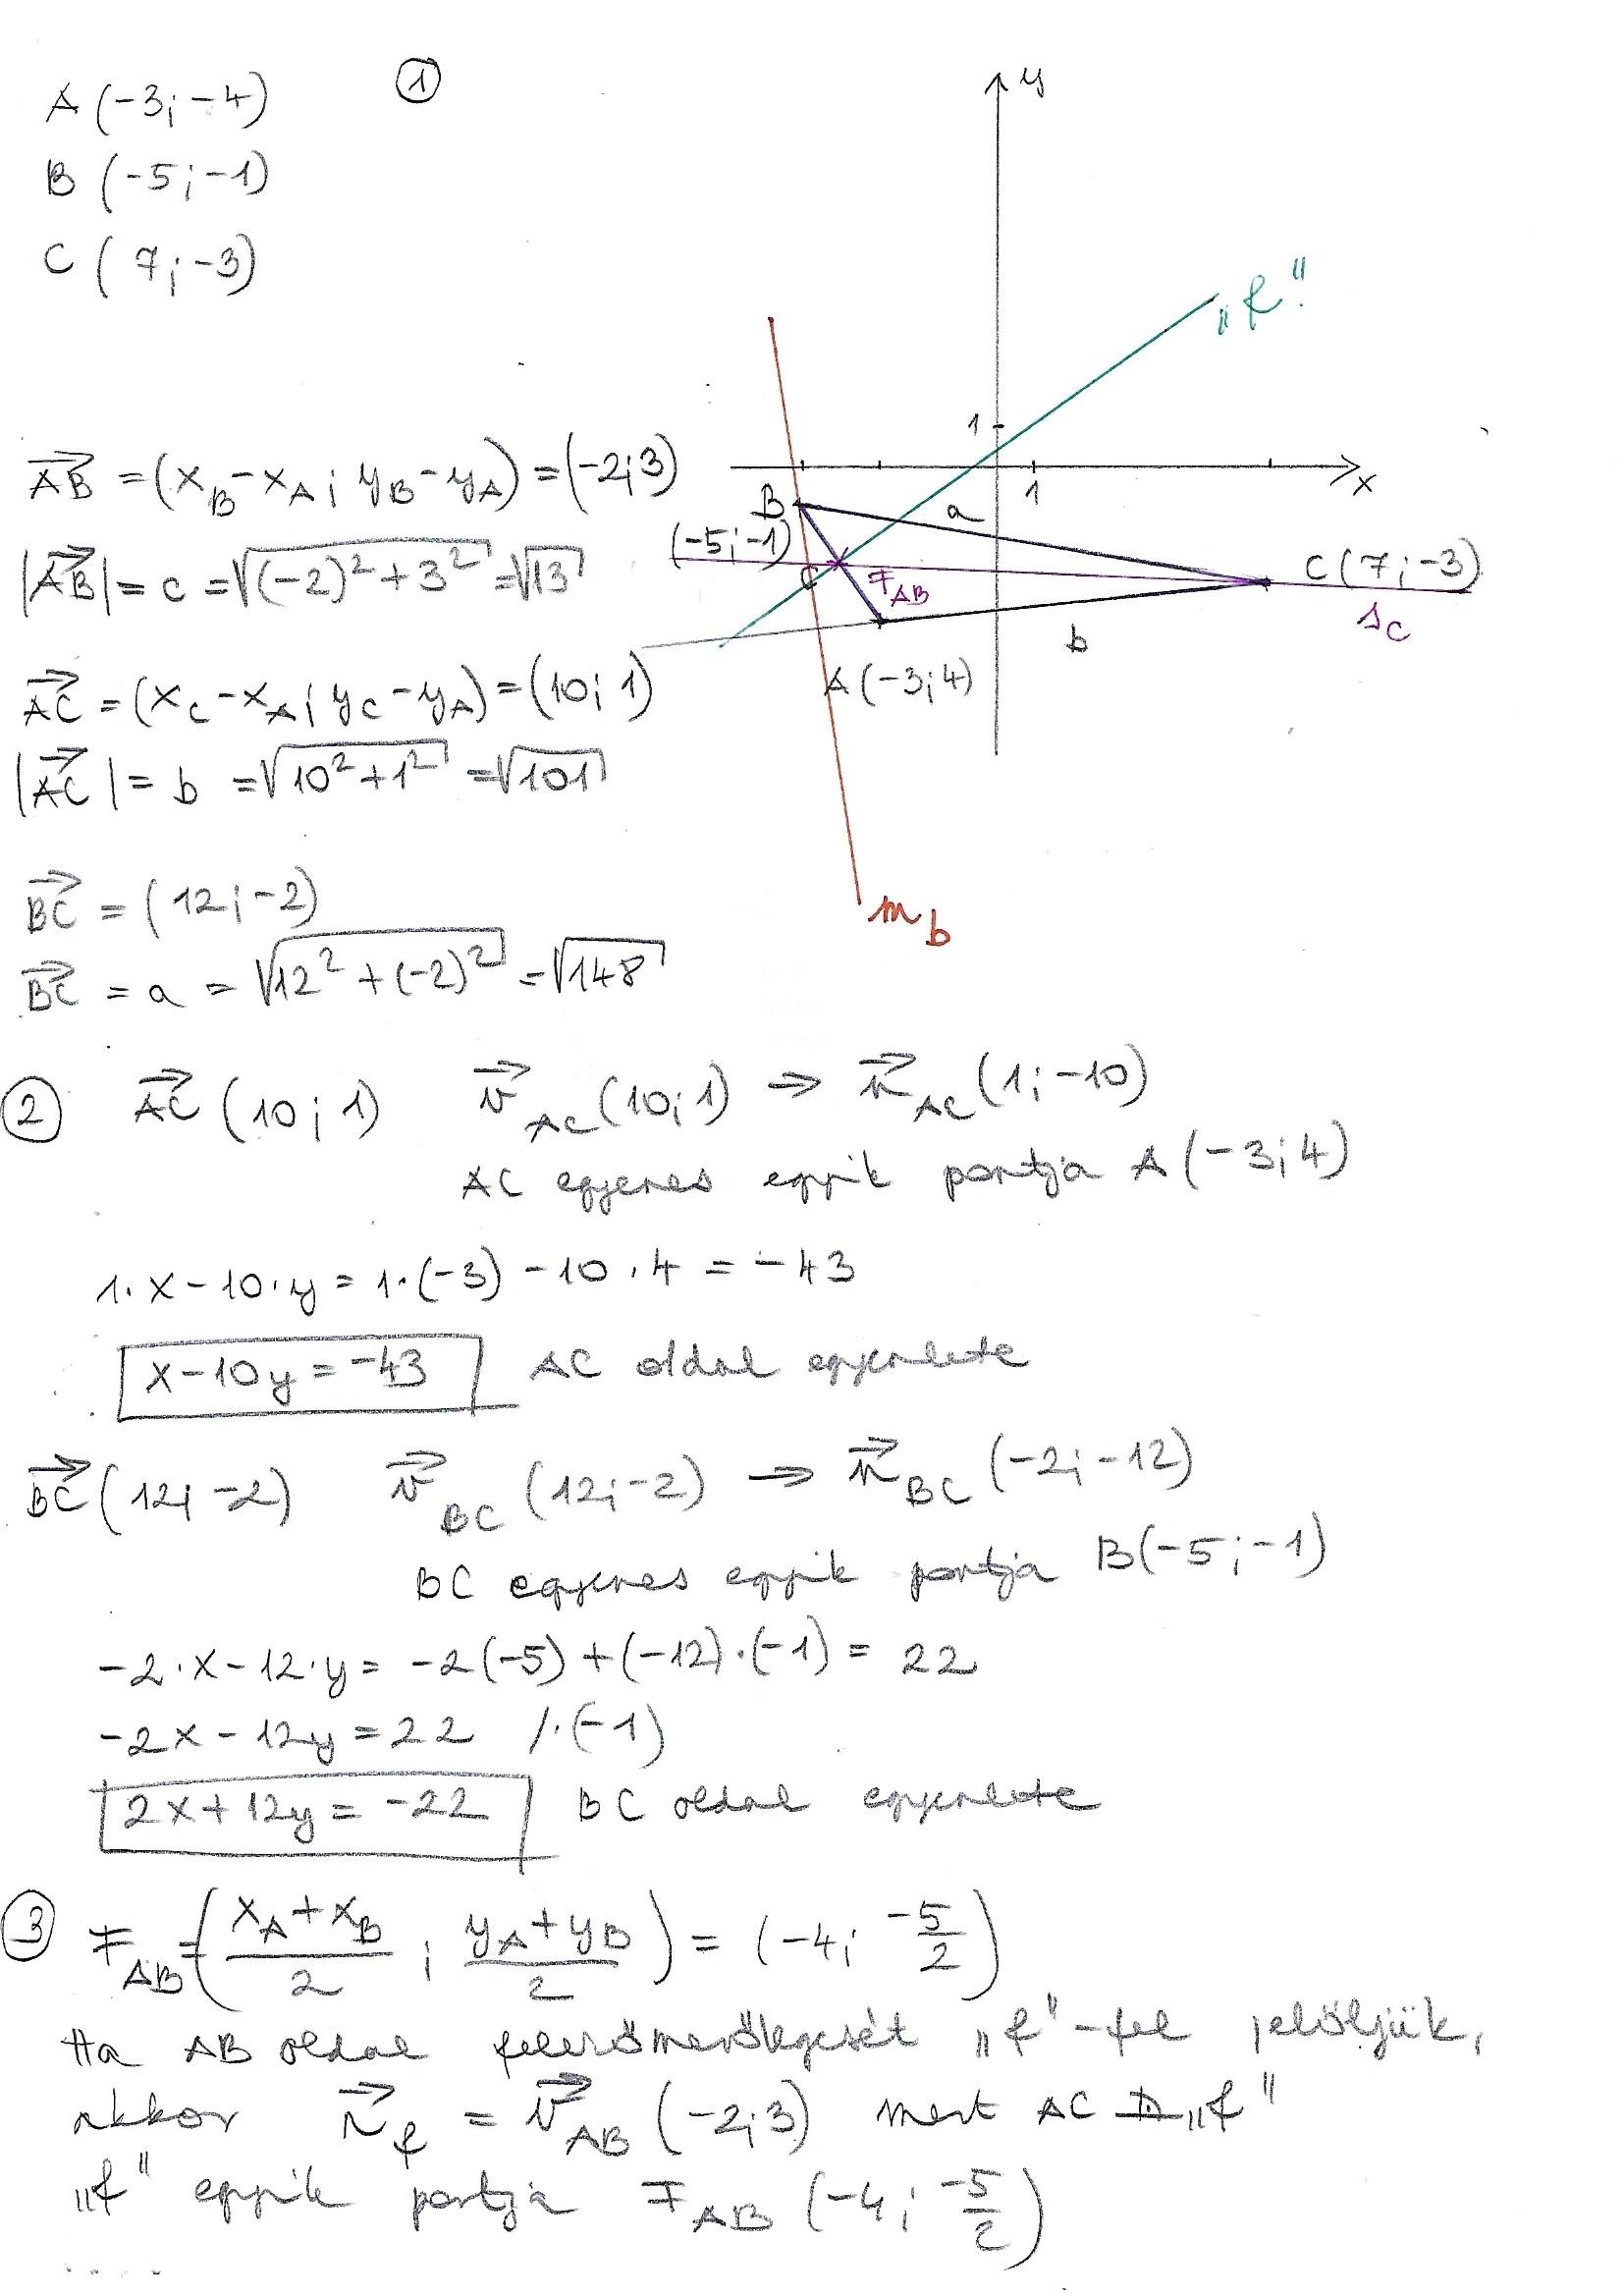 ①
A (-3; -4)
B (-5; -1)
C ( 7; -3)
y
„f"
1
1
x
B
(-5; -1)
a
C (7; -3)
c
F_AB
s_C
b
A (-3; 4)
m_b
→AB = (x_B - x_A; y_B - y_A) = (-2; 3)
|→AB| = c = √((-2)² + 3²) = √13
→AC = (x_C - x_A; y_C - y_A) = (10; 1)
|→AC| = b = √(10² + 1²) = √101
→BC = (12; -2)
→BC = a = √(12² + (-2)²) = √148
② →AC (10; 1) →v_AC (10; 1) ⇒ →n_AC (1; -10)
AC egyenes egyik pontja A (-3; 4)
1·x - 10·y = 1·(-3) - 10·4 = -43
x - 10y = -43 AC oldal egyenlete
→BC (12; -2) →v_BC (12; -2) → →n_BC (-2; -12)
BC egyenes egyik pontja B (-5; -1)
-2·x - 12·y = -2(-5) + (-12)·(-1) = 22
-2x - 12y = 22 /·(-1)
2x + 12y = -22 BC oldal egyenlete
③ F_AB = ((x_A + x_B)/2 ; (y_A + y_B)/2) = (-4; -5/2)
Ha AB oldal felezőmerőlegesét „f"-fel jelöljük,
akkor →n_f = →v_AB (-2; 3) mert AC „f"
„f" egyik pontja F_AB (-4; -5/2)